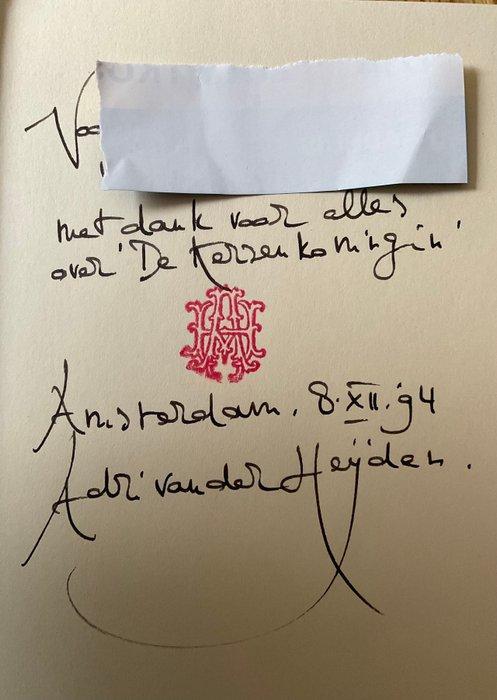 Voo
met dank voor alles
over 'De Kersenkoningin'
Amsterdam, 8.XII.'94
Adri van der Heijden.